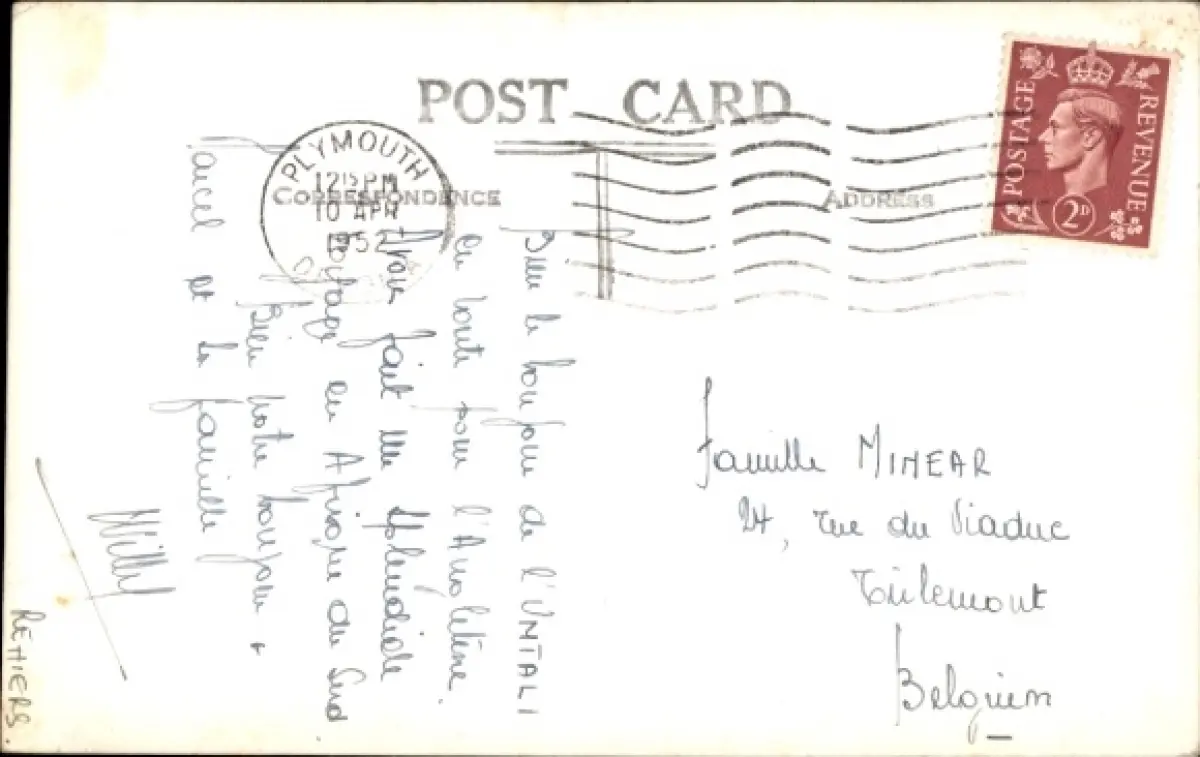 POST CARD
CORRESPONDENCE
ADDRESS
PLYMOUTH
12 15 PM
10 APR
1952
POSTAGE
REVENUE
2D
Bien le bonjour de l'UMTALI
En route pour l'Angleterre.
Avons fait un splendide
voyage en Afrique du Sud
Bien votre bonjour a
Marcel et la famille
Willy
REMERS.
Famille MINEAR
24, rue du Viaduc
Tirlemont
Belgium